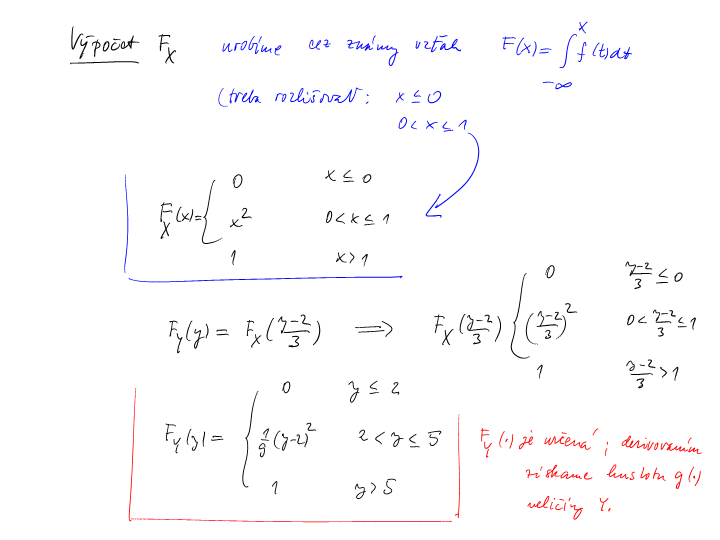 Výpočet F_X urobíme cez známy vzťah F(x) = ∫_{-∞}^{x} f(t)dt
(treba rozlišovať: x ≤ 0
0 < x ≤ 1
F_X(x) = { 0 x ≤ 0
x² 0 < x ≤ 1
1 x > 1
F_Y(y) = F_X((y-2)/3) ⟹ F_X((y-2)/3) { 0 (y-2)/3 ≤ 0
((y-2)/3)² 0 < (y-2)/3 ≤ 1
1 (y-2)/3 > 1
F_Y(y) = { 0 y ≤ 2
1/9 (y-2)² 2 < y ≤ 5
1 y > 5
F_Y(·) je určená; derivovaním
získame hustotu g(·)
veličiny Y.